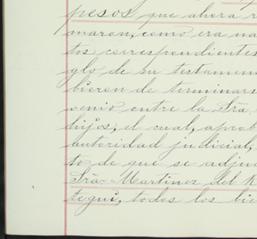 pesos, que ahora
maron, como era na
tos correspondientes
glo de su testamen
bieron de terminars
venio entre la Sra.
hijos, el cual, aprob
autoridad judicial,
to de que se adju
Sra. Martinez del R
tegui, todos los bie